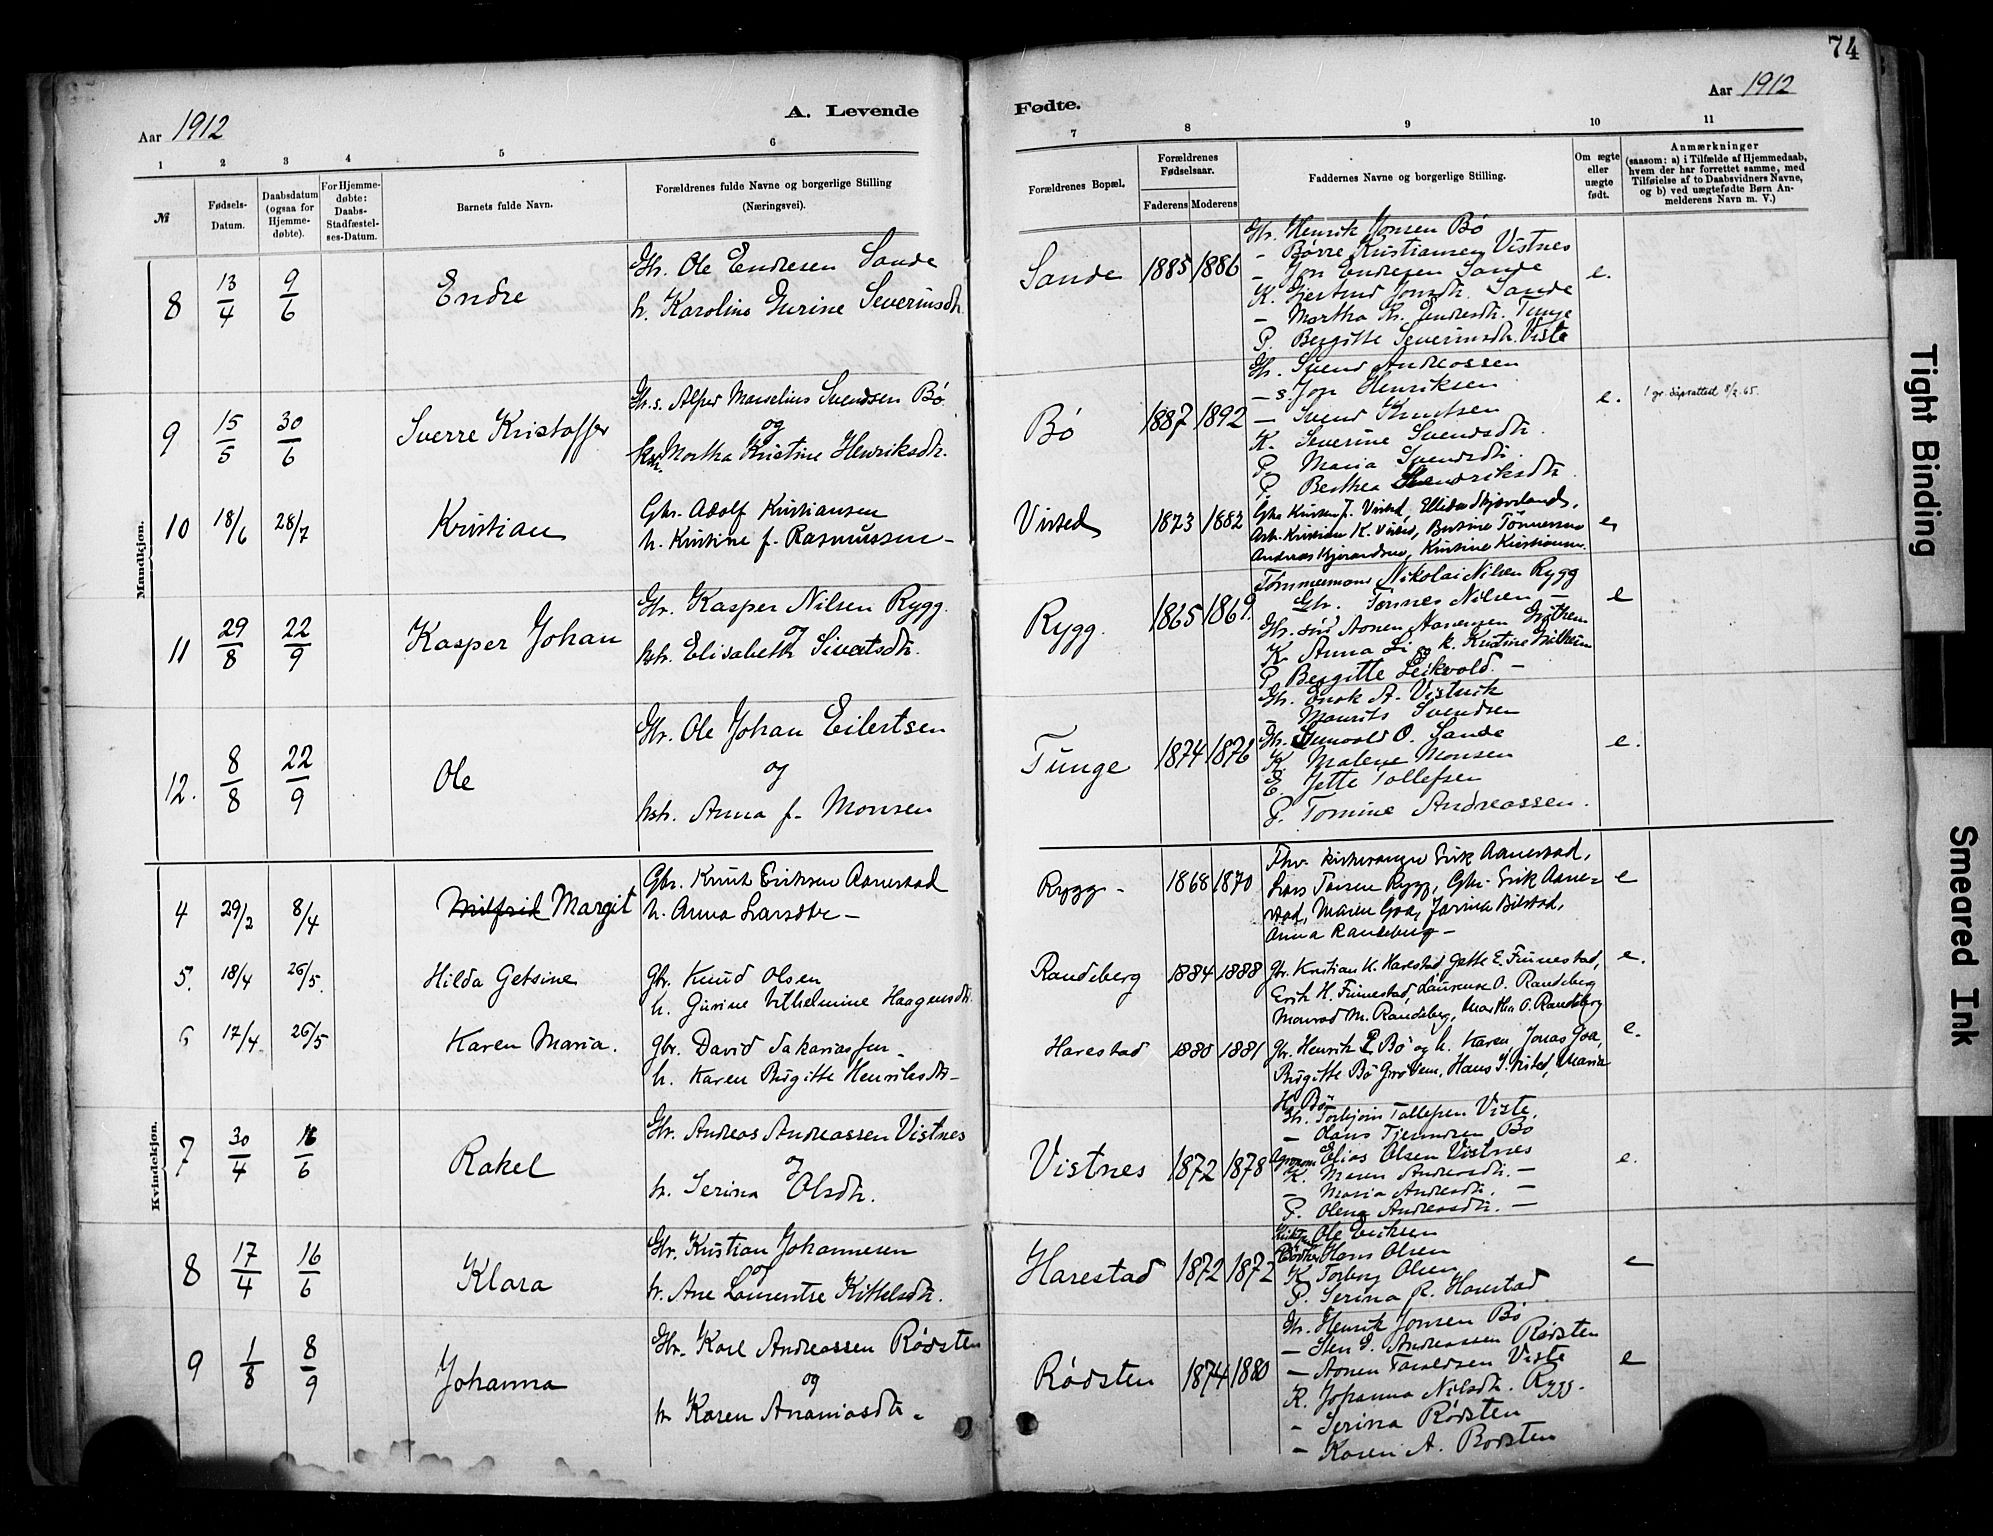 74
Aar 1912
A. Levende Fødte.
Aar 1912
1 2 3 4 5 6 7 8 9 10 11
№
Fødsels-Datum.
Daabsdatum (ogsaa for Hjemmedøbte).
For Hjemmedøbte: Daabs-Stadfæstelses-Datum.
Barnets fulde Navn.
Forældrenes fulde Navne og borgerlige Stilling
(Næringsvei).
Forældrenes Bopæl.
Forældrenes Fødselsaar.
Faderens Moderens
Faddernes Navne og borgerlige Stilling.
Om ægte eller uægte født.
Anmærkninger
(saasom: a) i Tilfælde af Hjemmedaab,
hvem der har forrettet samme, med
Tilføielse af to Daabsvidners Navne,
og b) ved uægtefødte Børn An-
melderens Navn m. V.)
Mandkjøn.
8 13/4 9/6 Endre
Gbr. Ole Endresen Sande
h. Karoline Gurine Severinsdtr.
Sande 1885 1886
Gbr. Henrik Jonsen Bö
- Børre Kristiansen Vistnes
- Jon Endresen Sande
K. Gjertrud Jonsdtr. Sande
- Martha Kr. Endresdtr. Tunge
P. Bergitte Severinsdtr. Viste
e.
9 15/5 30/6 Sverre Kristoffer
Gbr.s. Alfred Marselius Svendsen Bö
og
Martha Kristine Henriksdtr.
Bö 1887 1892
Gbr. Svend Andreassen
- s. Jon Henriksen
- Svend Knutsen
K. Severine Svendsdtr.
P. Maria Svendsdtr.
P. Berthea Henriksdtr.
e.
10 18/6 28/7 Kristian
Gbr. Adolf Kristiansen
h. Kristine f. Rasmussen -
Visted 1873 1882
Andreas Kjørandsen, Kristine Kristiansen
e
11 29/8 22/9 Kasper Johan
Gbr. Kasper Nilsen Rygg.
og
hstr. Elisabeth Sivertsdtr.
Rygg. 1865 1869.
Tømmermand Nikolai Nilsen Rygg
Gbr. Tønnes Nilsen -
K. Anna Li og k. Kristine
P. Bergitte Leikvold. -
e
12. 8/8 22/9 Ole
Gbr. Ole Johan Eilertsen
og
hstr. Anna f. Monsen
Tunge 1874 1876
Gbr. Enok A. Vistvik
- Maurits Svendsen
Gbr. Gunvald O. Sande
K. Malene Monsen
E. Jette Tollefsen
P. Tomine Andreassen.
e.
Kvindekjøn.
4 29/2 8/4 Milfrid Margit
Gbr. Knut Eriksen Aanestad
h. Anna Larsdtr -
Rygg - 1868 1870
Fhv. kirkesanger Erik Aanestad,
Lars Torsen Rygg, Gbr. Erik Aane-
stad, Maren Goa, Jorina Bilstad,
Anna Randeberg -
e
5. 18/4 26/5. Hilda Getsine
Gbr. Knud Olsen
h. Gurine Vilhelmine Haagensdtr.
Randeberg 1884 1888
Gbr. Kristian K. Harestad, Jette E. Finnestad,
Erik H. Finnestad, Laurense O. Randeberg
Monrad M. Randeberg, Martha O. Randeberg
e.
6 17/4 26/5 Karen Maria.
Gbr. David Sakariassen
h. Karen Birgitte Henriksdtr -
Harestad 1880 1881
Gbr. Henrik P. Bö og h. Karen, Jonas Goa,
Birgitte Bö, Hans S. Visted, Maria
H. Bö
e.
7 30/4 16/6 Rakel
Gbr. Andreas Andreassen Vistnes
og
h. Serina Olsdtr.
Vistnes 1872 1878
Gbr. Torbjörn Tollefsen Viste.
- Hans Bö
Agronom Elias Olsen Vistnes
K. Maren Andreasdtr. -
- Maria Andreasdtr. -
P. Olena Andreasdtr. -
e.
8 17/4 16/6 Klara
Gbr. Kristian Johannesen
og
h. Ane Laurentse Kittelsdtr.
Harestad 1872 1872
Ole Eriksen
Bødker Hans Olsen
K. Torborg Olsen
P. Serina R. Harestad
e
9 1/8 8/9 Johanna
Gbr. Karl Andreassen Rödsten
og
h. Karen Ananiasdtr.
Rödsten 1874 1880
Gbr. Henrik Jonsen Bö
- Sten G. Andreassen Rödsten
- Aanen Taraldsen Viste
K. Johanna Nilsdtr. Rygg.
- Serina Rödsten
- Karen A. Rödsten
e
Tight Binding
Smeared Ink